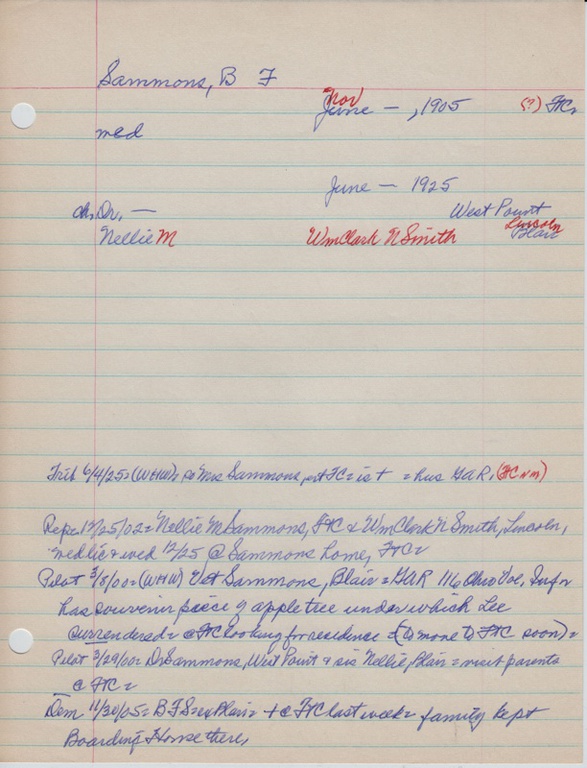 Sammons, B F
Nov
June — , 1905 (?) FC,
med
June — 1925
ch, Dr, — West Point
Lincoln
Nellie M Wm Clark N Smith Blair
Trib 6/4/25 = (W+W) = Mrs Sammons, FC = = hus GAR, (FC N M)
Rep = 12/25/02 = Nellie M Sammons, FC & Wm Clark N Smith, Lincoln,
Nellie & wed 12/25 @ Sammons home, FC =
Pilot 3/8/00 = (W+W) Vet Sammons, Blair = GAR 116 Ohio Vol, Inf =
has souvenir piece of apple tree under which Lee
surrendered = @ FC looking for residence = (to move to FC soon) =
Pilot 3/29/00 = Dr Sammons, West Point & sis Nellie, Blair = visit parents
@ FC =
Dem 11/30/05 = B F S = ex Blair = + @ FC last week = family kept
Boarding House there,